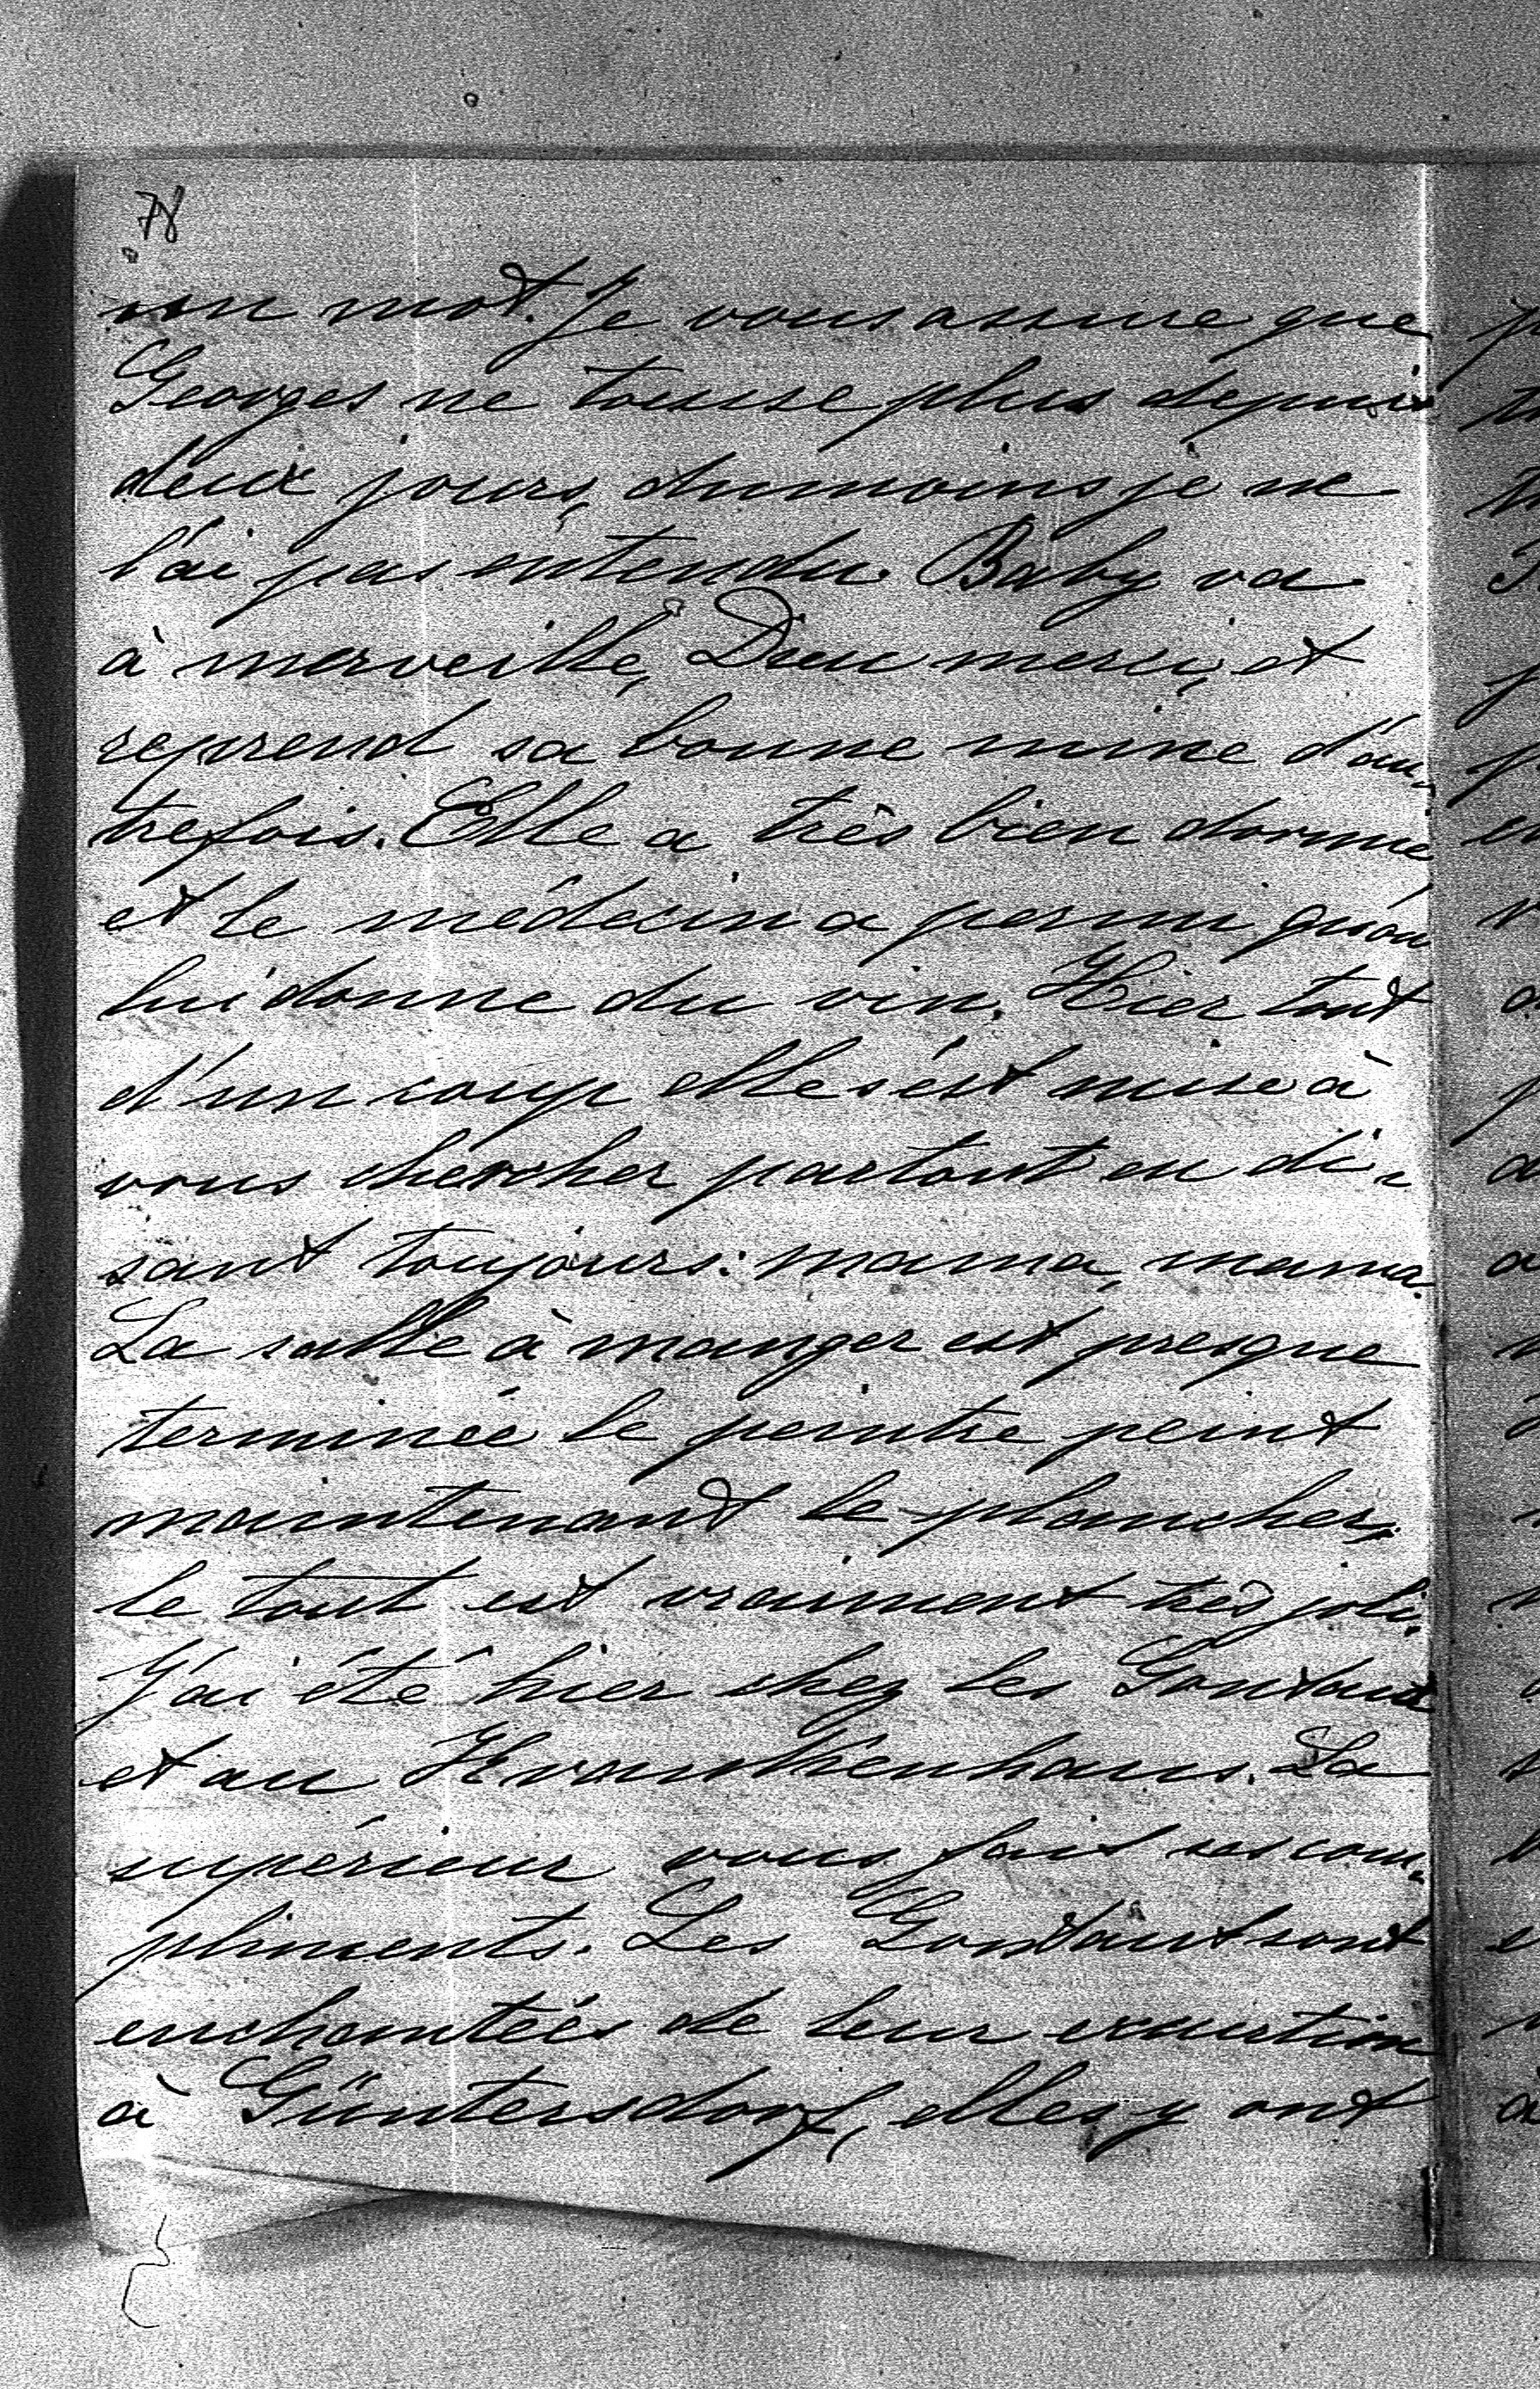 78
un mot. Je vous assure que
Georges ne tousse plus depuis
deux jours, dumoins je ne
l'ai pas entendu. Baby va
à merveille, Dieu merci, et
reprend sa bonne mine d'au-
trefois. Elle a très bien dormie
et le médecin a permi qu'on
lui donne du vin. Hier tout
d'un coup elle s'est mise à
vous chercher partout en di-
sant toujours: mama, mama.
La salle à manger est presque
terminée le peintre peint
maintenant le plancher,
le tout est vraiment très joli.
J'ai été hier chez les Gontaut
et au Krankenhaus. La
supérieur vous fait ses com-
pliments. Les Gontaut sont
enchantées de leur excurtion
à Güntersdorf, elles y ont